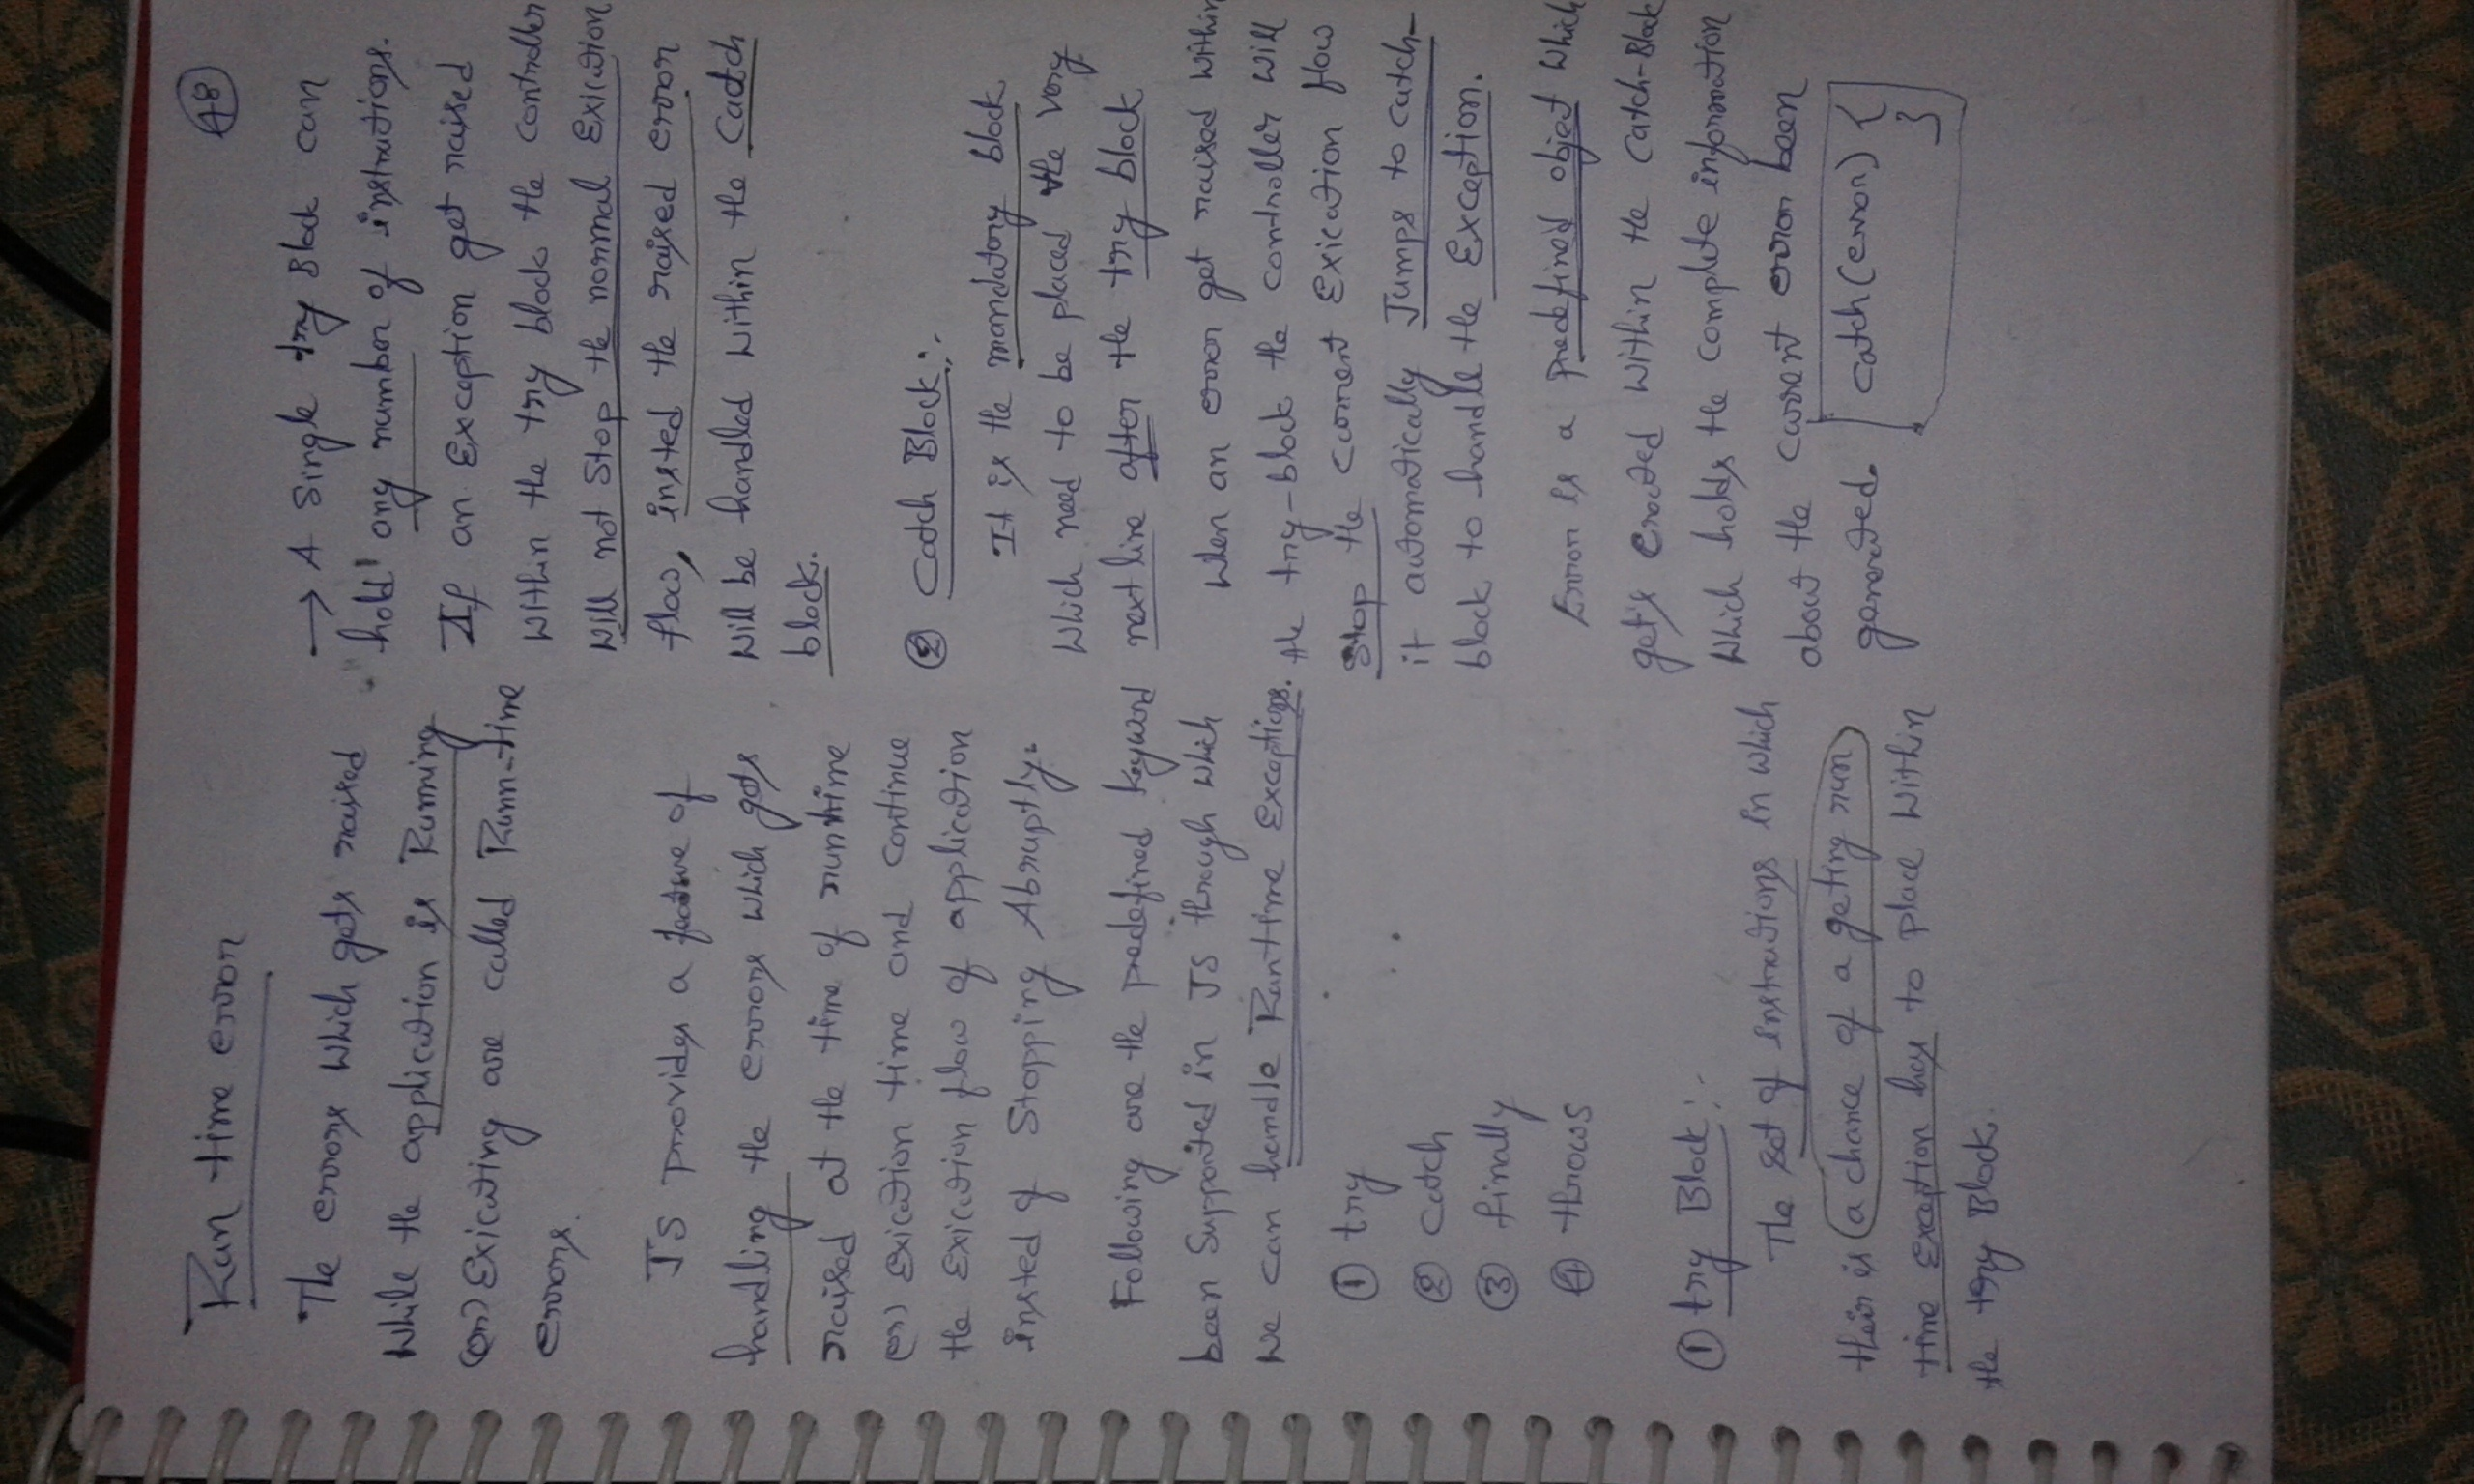 Run time error
The errors which gets raised
while the application is Running
(or) Exicuting are called Runn-time
errors.
JS provides a feature of
handling the errors which gets
raised at the time of runtime
(or) Exicution time and continue
the Exicution flow of application
insted of Stopping Abruptly.
Following are the predefined keyword
been Supported in JS through which
we can handle Runtime Exceptions.
① try
② catch
③ finally
④ throws
① try Block:-
The set of instructions in which
their is a chance of a geting run
time Exception has to place within
the try Block.
48
→ A Single try Block can
hold any number of instructions.
If an Exception get raised
within the try block the controller
will not Stop the normal Exicution
flow, insted the raised error
will be handled within the Catch
block.
② Catch Block:-
It is the mandatory block
which need to be placed the very
next line after the try block
when an error get raised within
the try-block the controller will
Stop the current Exicution flow
it automatically Jumps to catch-
block to handle the Exception.
Error is a predefined object which
get's Created within the catch-Block
which holds the complete information
about the current error been
generated. catch(error) {
}